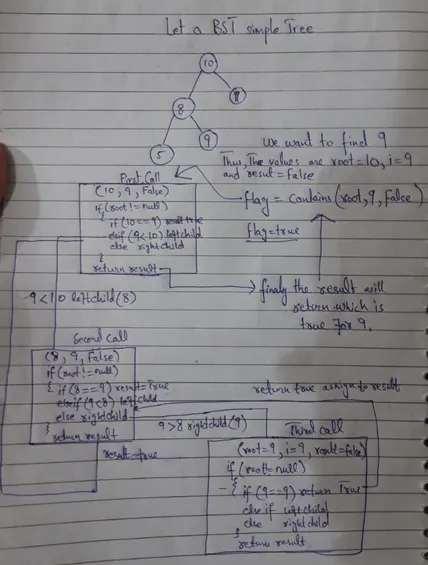 Let a BST simple Tree
10
8
9
5
We want to find 9
Thus, The values are root=10, i=9
and result=False
First Call
(10, 9, False)
if(root!=null)
{ if(10==9) result=true
elseif (9<10) leftchild
else rightchild
}
return result
flag = contains(root,9,False)
flag=true
finaly the result will
return which is
true for 9.
9<10 leftchild(8)
Second call
(8, 9, False)
if(root!=null)
{ if(8==9) result=True
elseif(9<8) leftchild
else rightchild
}
return result
return true assign to result
9>8 rightchild(9)
result=true
Third Call
(root=9, i=9, result=false)
if(root!=null)
{ if(9==9) return True
else if leftchild
else rightchild
}
return result